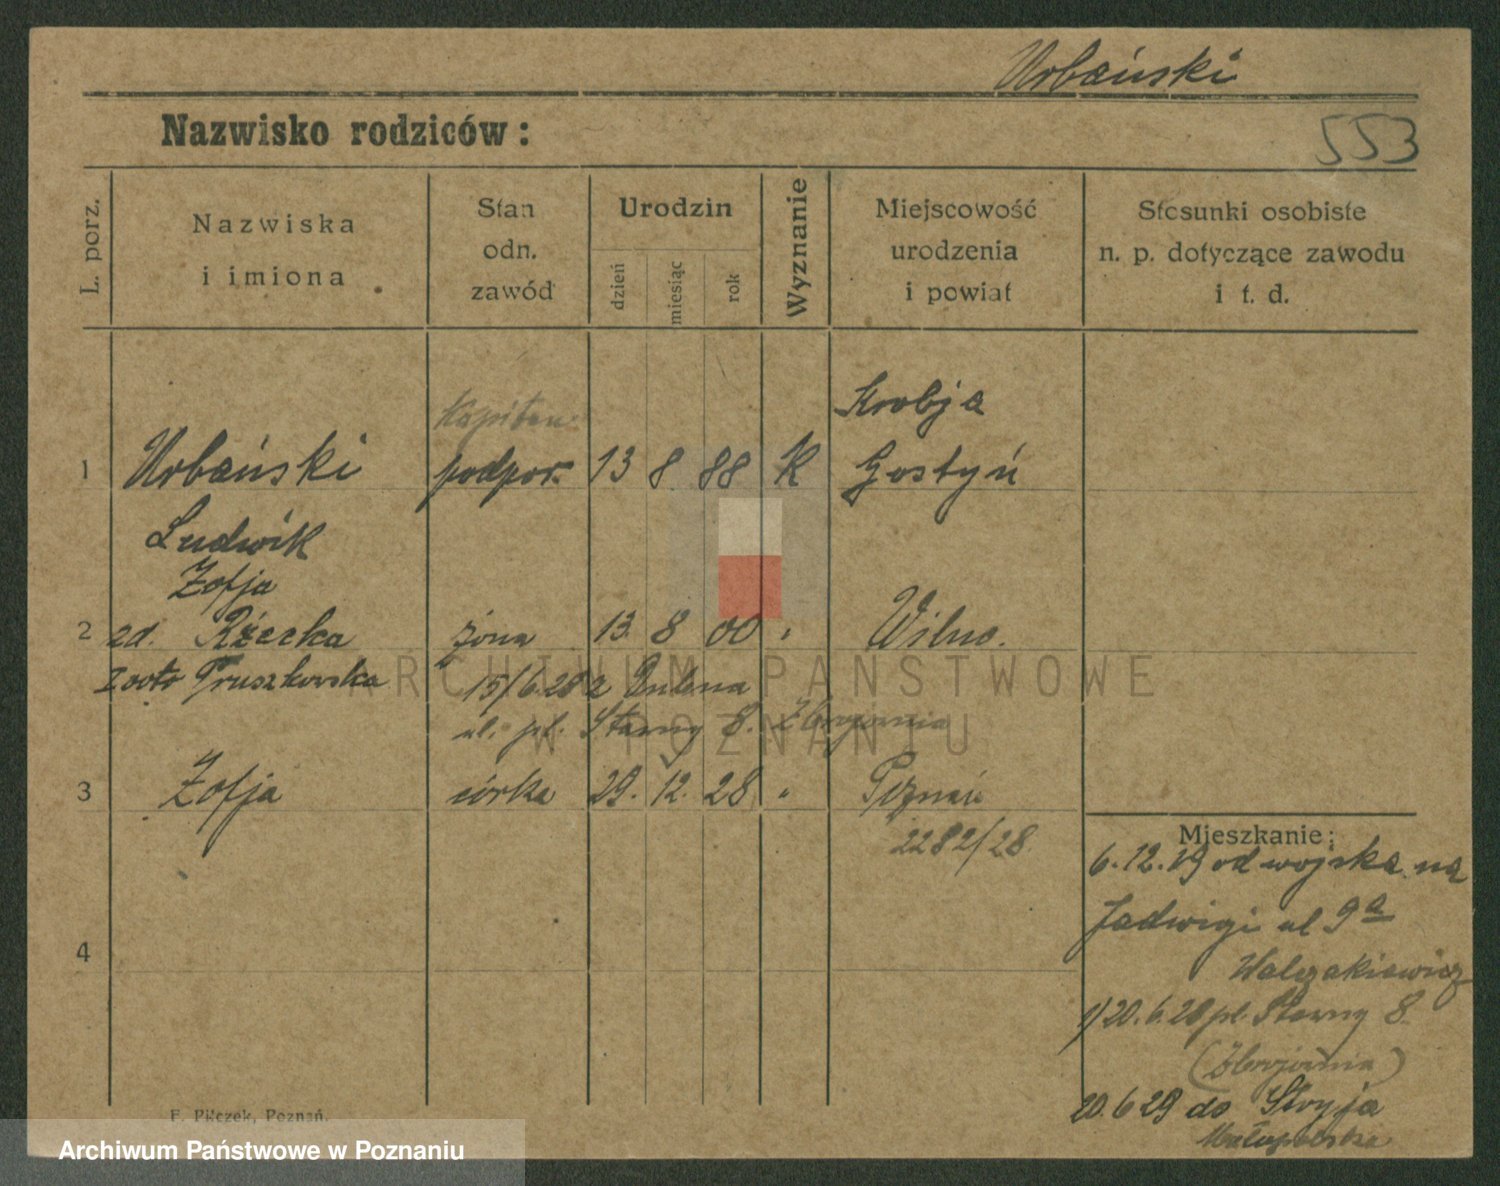 Urbański
Nazwisko rodziców:
553
L. porz.
Nazwiska
i imiona
Stan
odn.
zawód
Urodzin
dzień
miesiąc
rok
Wyznanie
Miejscowość
urodzenia
i powiat
Stosunki osobiste
n. p. dotyczące zawodu
i t. d.
Kapitan
Krobja
1 Urbański podpor. 13 8 88 K Gostyń
Ludwik
Zofja
2 zd. żona 13. 8 00 " Wilno.
Pruszkowska 15/6.28 z
ul. pl. Stawny 8. Zbrojownia
3 Zofja córka 29. 12. 28 " Poznań
2282/28
4
Mieszkanie:
6.12.19 od wojska na
Jadwigi ul 9a
Walczakiewicz
1) 20.6.28 pl. Stawny 8.
(Zbrojownia)
20.6 29 do Stryja
Małopolska
F. Pilczek, Poznań.
ARCHIWUM PAŃSTWOWE
W POZNANIU
Archiwum Państwowe w Poznaniu